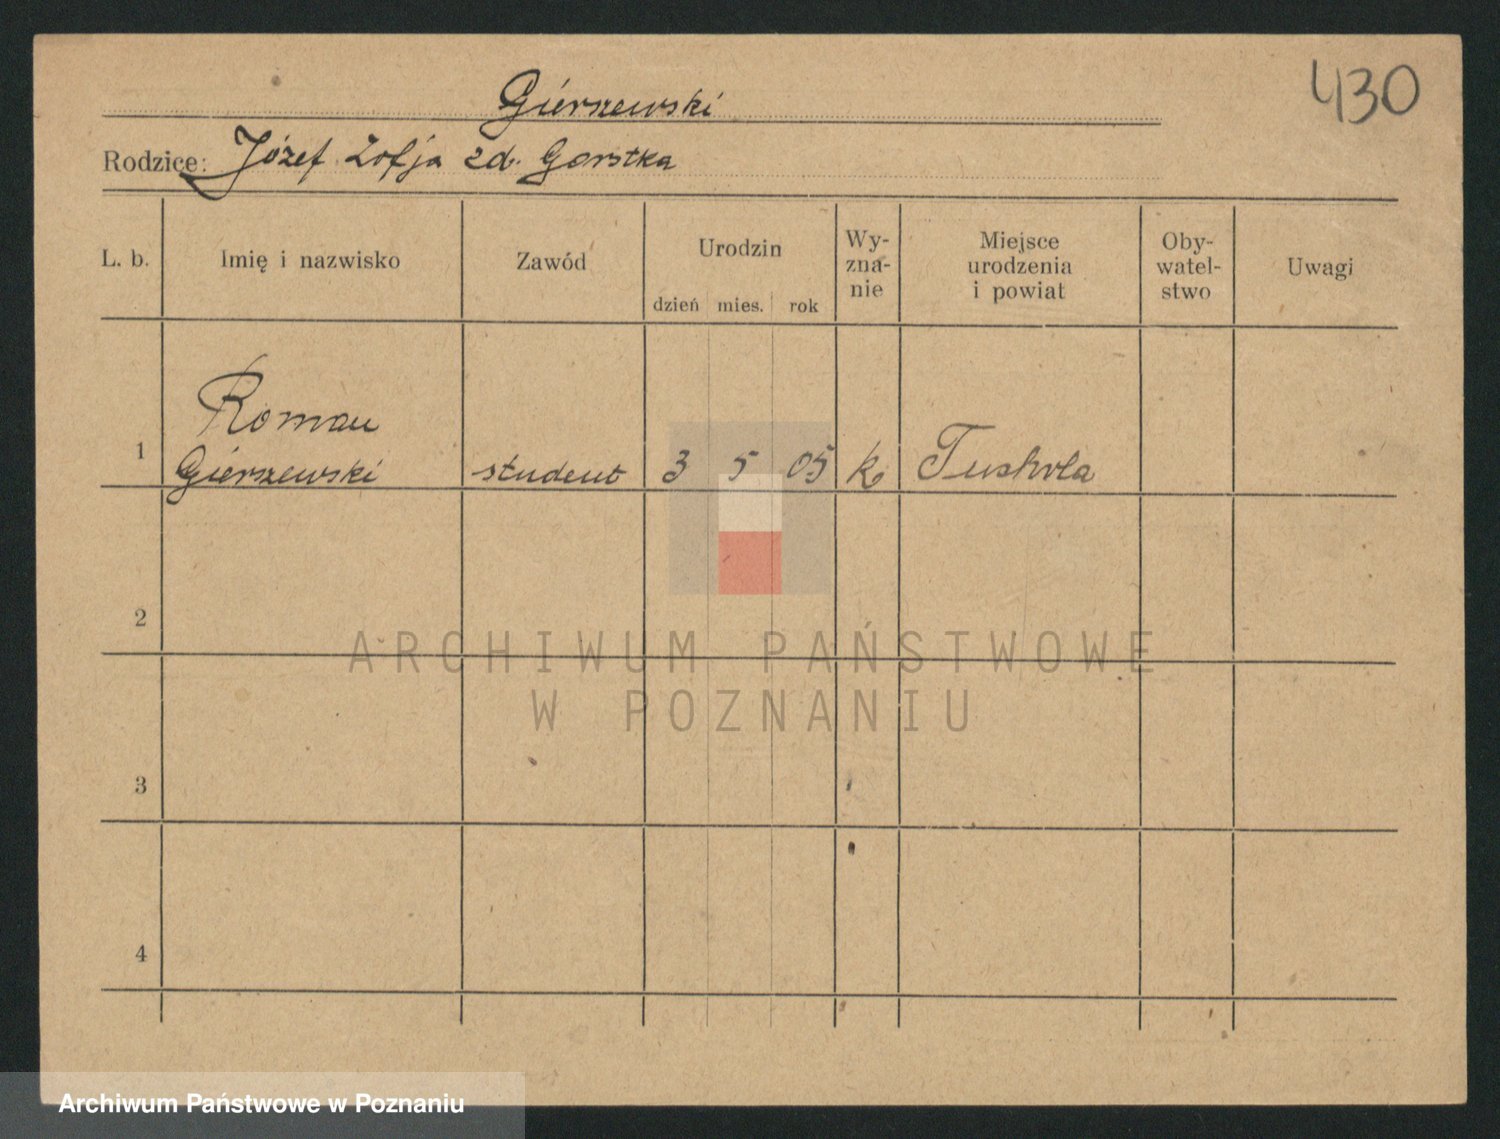 430
Gierszewski
Rodzice: Józef Zofja zd. Gorstka
L. b. Imię i nazwisko Zawód Urodzin dzień mies. rok Wy- zna- nie Miejsce urodzenia i powiat Oby- watel- stwo Uwagi
Roman
1 Gierszewski student 3 5 05 k. Tuchola
2
3
4
ARCHIWUM PAŃSTWOWE
W POZNANIU
Archiwum Państwowe w Poznaniu